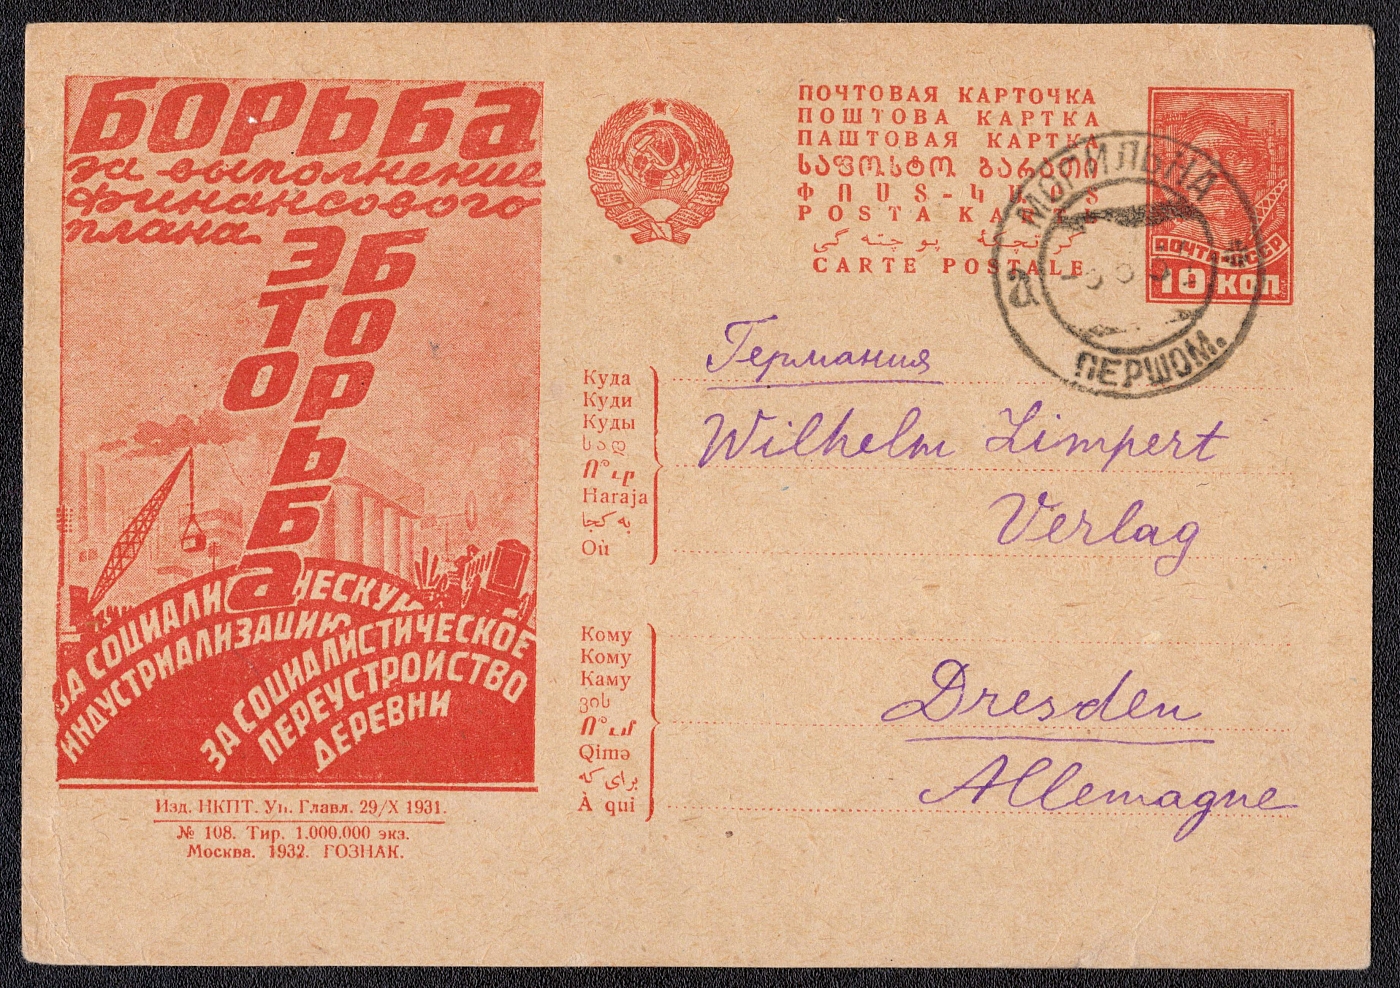 БОРЬБА
за выполнение
финансового
плана
ЭТО
БОРЬБА
ЗА СОЦИАЛИ ЧЕСКУЮ
ИНДУСТРИАЛИЗАЦИЮ
ЗА СОЦИАЛИСТИЧЕСКОЕ
ПЕРЕУСТРОЙСТВО
ДЕРЕВНИ
Изд. НКПТ. Уп. Главл. 29/X 1931.
№ 108. Тир. 1.000.000 экз.
Москва. 1932. ГОЗНАК.
ПОЧТОВАЯ КАРТОЧКА
ПОШТОВА КАРТКА
ПАШТОВАЯ КАРТКА
ᲡᲐᲤᲝᲡᲢᲝ ᲑᲐᲠᲐᲗᲘ
ՓՈՍՏ-ԿԱՐՏ
POSTA KARTЬ
كرتچكهٔ پوچته گی
CARTE POSTALE
ПОЧТА СССР
10 КОП.
МОГИЛЬНА
а
ПЕРШОМ.
Куда
Куди
Куды
სად
Ո՞ւր
Haraja
به كجا
Où
Германия
Wilhelm Limpert
Verlag
Кому
Кому
Каму
ვის
Ո՞ւմ
Qimə
برای كه
À qui
Dresden
Allemagne